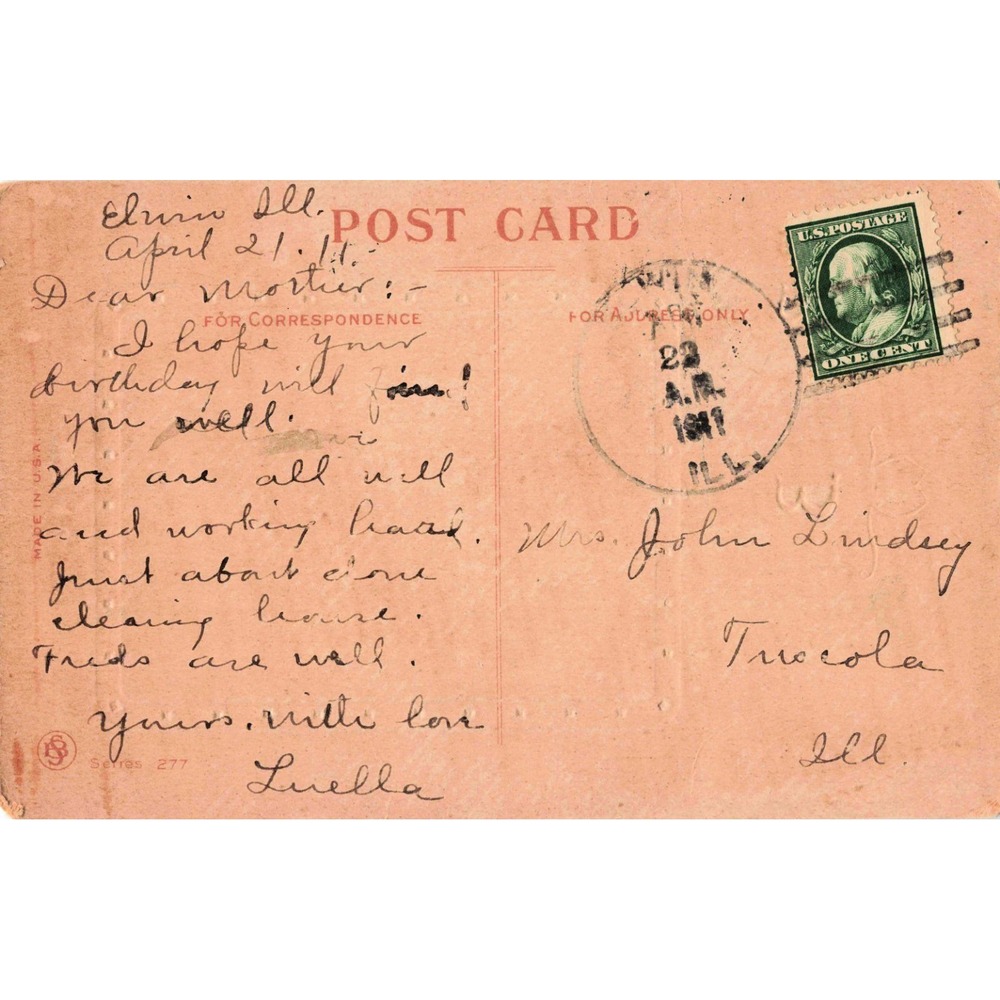 Elwin Ill.
April 21. 11.-
POST CARD
U.S. POSTAGE
ONE CENT
FOR CORRESPONDENCE
FOR ADDRESS ONLY
Dear Mother:-
I hope your
birthday will find
you well.
We are all well
and working hard.
Just about done
cleaning house.
Freds are well.
Yours, with love
Luella
22
A.M.
1911
ILL.
Mrs. John Lindsey
Tuscola
Ill.
MADE IN U.S.A.
Series 277